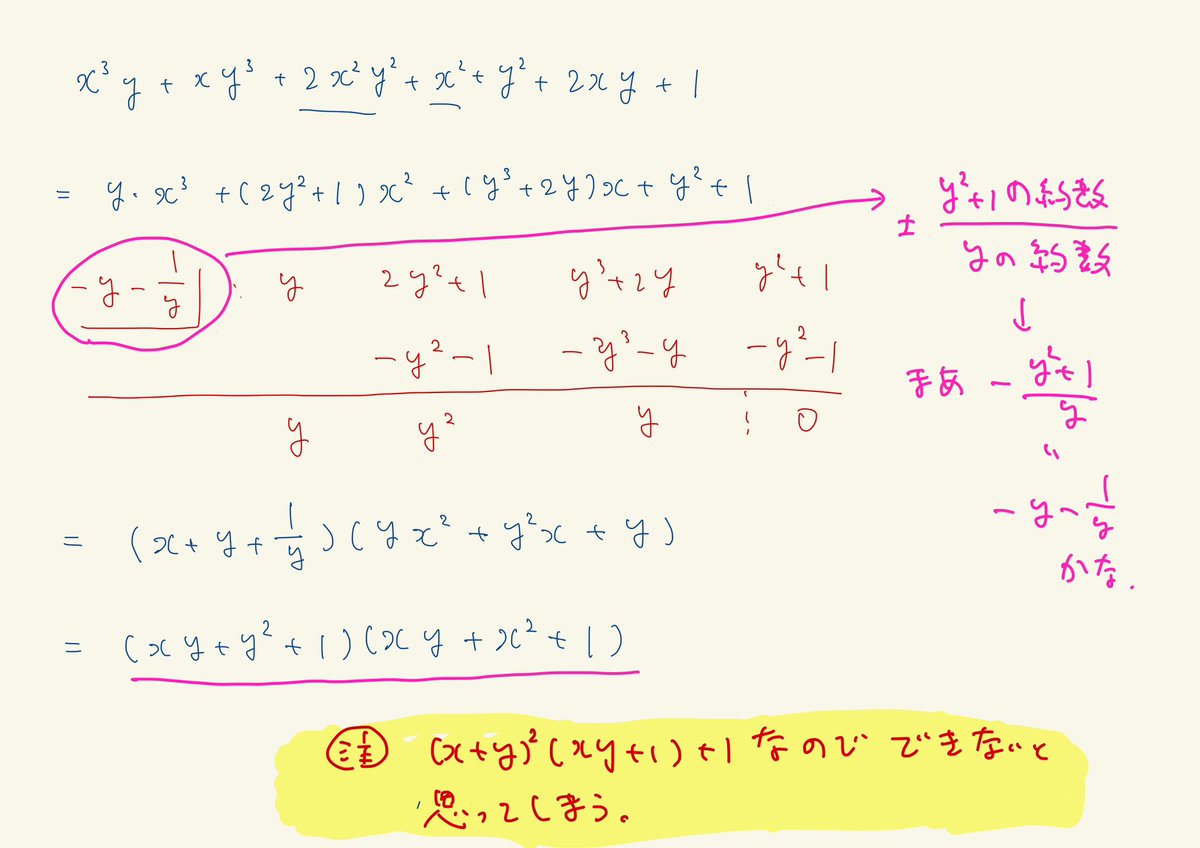 x³y + xy³ + 2x²y² + x² + y² + 2xy + 1
= y・x³ + (2y²+1)x² + (y³+2y)x + y² + 1
± y²+1の約数 / yの約数
-y - 1/y | y 2y²+1 y³+2y y²+1
-y²-1 -y³-y -y²-1
y y² y 0
↓
まあ - (y²+1)/y
〃
-y - 1/y
かな.
= (x + y + 1/y)(yx² + y²x + y)
= (xy + y² + 1)(xy + x² + 1)
注 (x+y)²(xy+1)+1 なので できないと
思ってしまう。